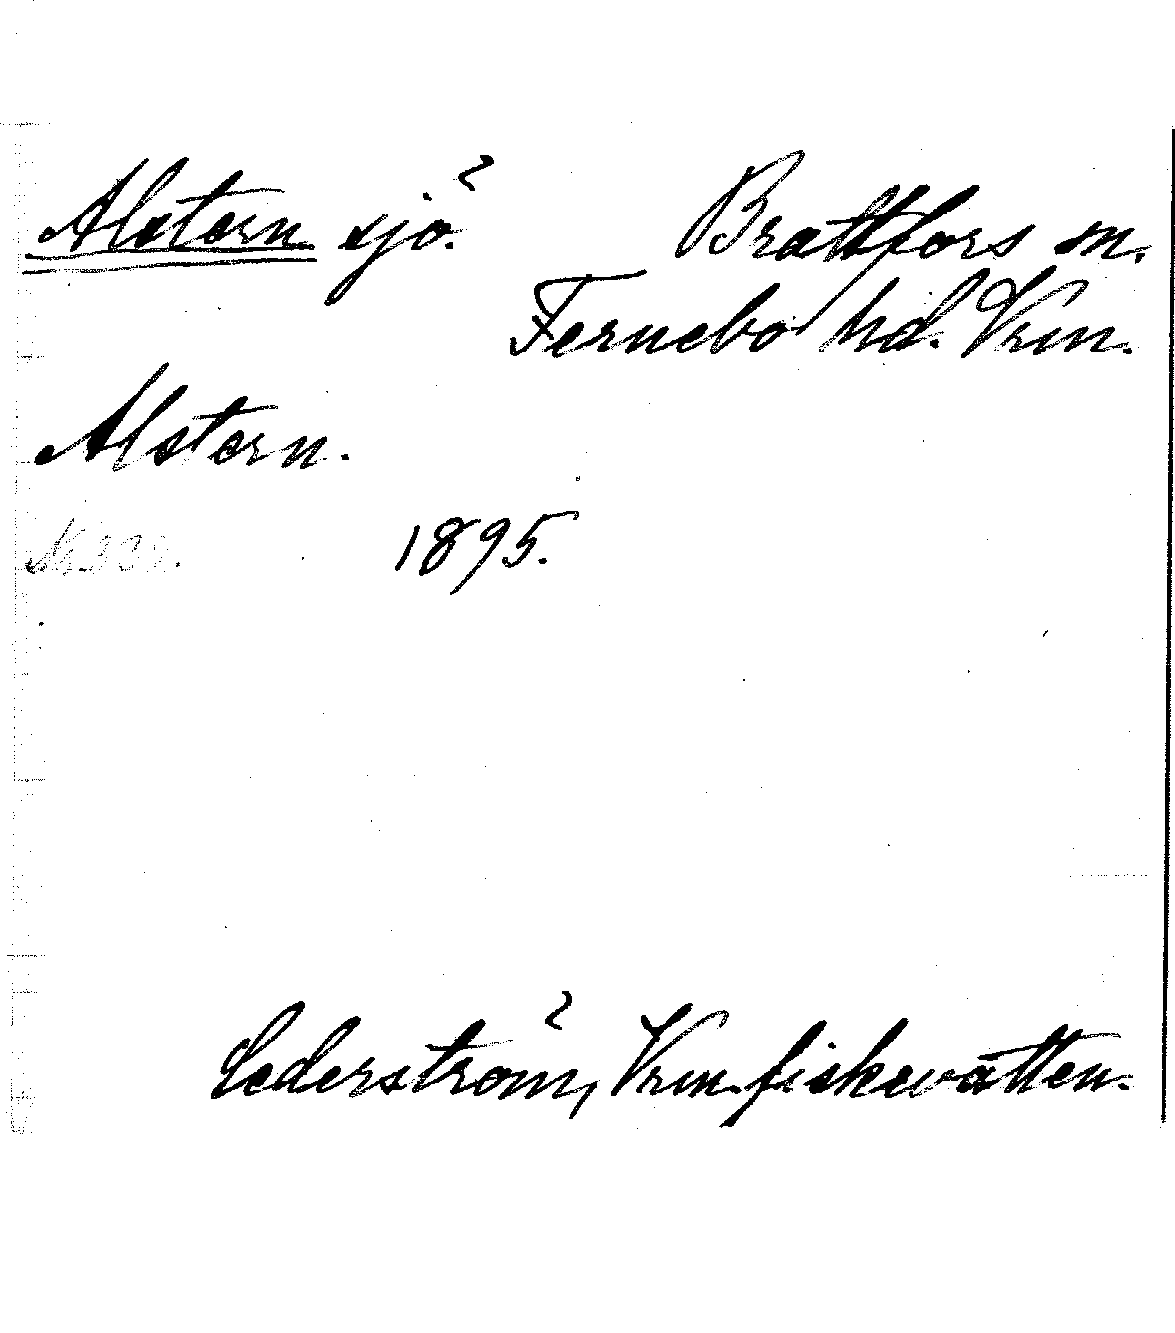 Alstern sjö. Brattfors sn.
Fernebo hd. Vrm.
Alstern.
1895.
Cederström, Vrm. fiskevatten.